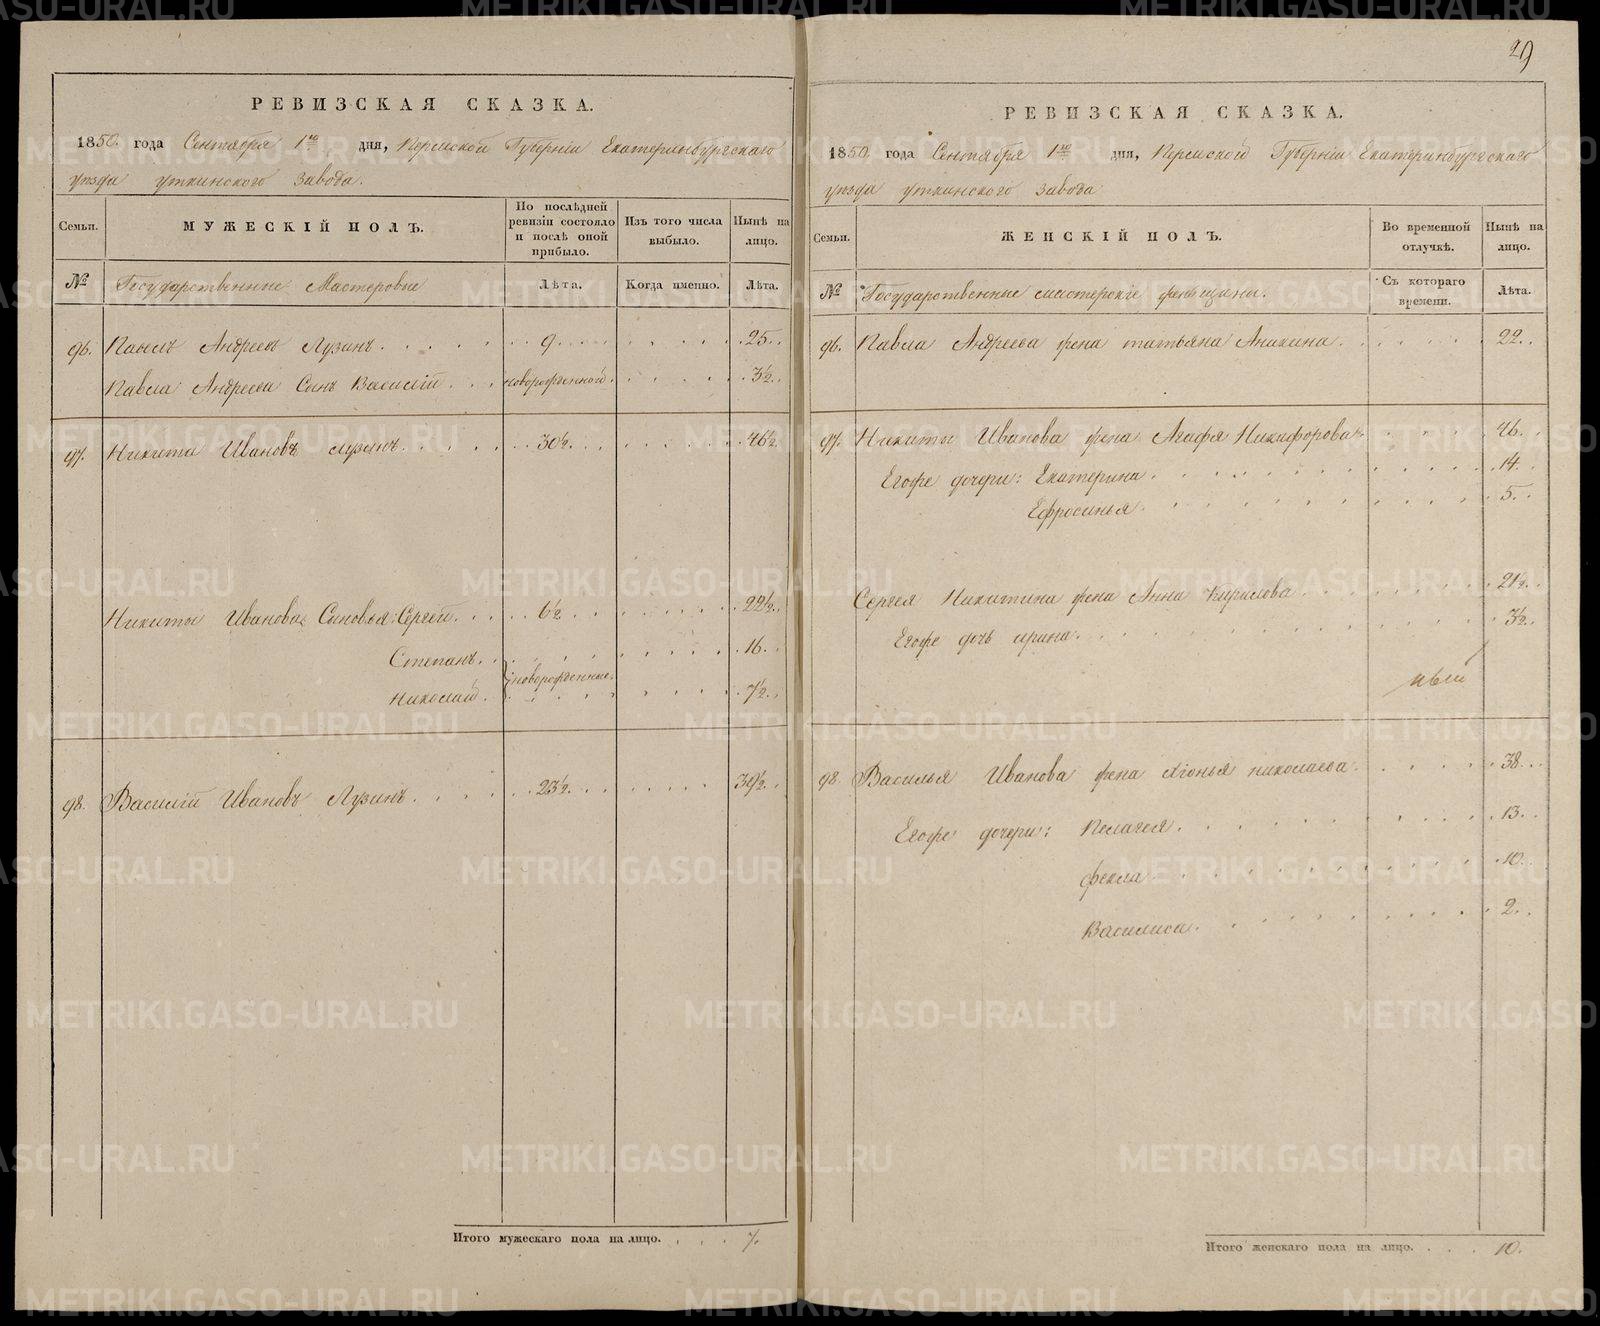 29
РЕВИЗСКАЯ СКАЗКА.
1850 года Сентября 1го дня, Пермской Губерніи Екатеринбургскаго
уѣзда уткинского завода.
Семьи.
МУЖЕСКІЙ ПОЛЪ.
По послѣдней ревизіи состояло и послѣ оной прибыло.
Изъ того числа выбыло.
Нынѣ на лицо.
№
Государственные Мастеровые
Лѣта.
Когда именно.
Лѣта.
96. Павелъ Андреевъ Лузинъ. 9. 25.
Павла Андреева Сынъ Василій новорожденной. 3½.
97. Никита Ивановъ лузинъ. 30½. 46½.
Никиты Иванова Сыновья: Сергей. 6½. 22½.
Степанъ. 16.
новорожденные.
Николай. 7½.
98. Василій Ивановъ Лузинъ. 23½. 39½.
Итого мужескаго пола на лицо. 7.
РЕВИЗСКАЯ СКАЗКА.
1850 года Сентября 1го дня, Пермского Губерніи Екатеринбургскаго
уѣзда уткинского завода
Семьи.
ЖЕНСКІЙ ПОЛЪ.
Во временной отлучкѣ.
Нынѣ на лицо.
№
Государственные мастерскіе женщины.
Съ котораго времени.
Лѣта.
96. Павла Андреева жена татьяна Аникина. 22.
97. Никиты Иванова жена Агафя Никифорова. 46.
Егоже дочери: Екатерина. 14.
Ефросинья. 5.
Сергея Никитина жена Анна Кирилова. 21½.
Егоже дочь ирина. 3½.
98. Василья Иванова жена николаева. 38.
Егоже дочери: Пелагея. 13.
фекла. 10.
Василиса. 2.
Итого женскаго пола на лицо. 10.
METRIKI.GASO-URAL.RU